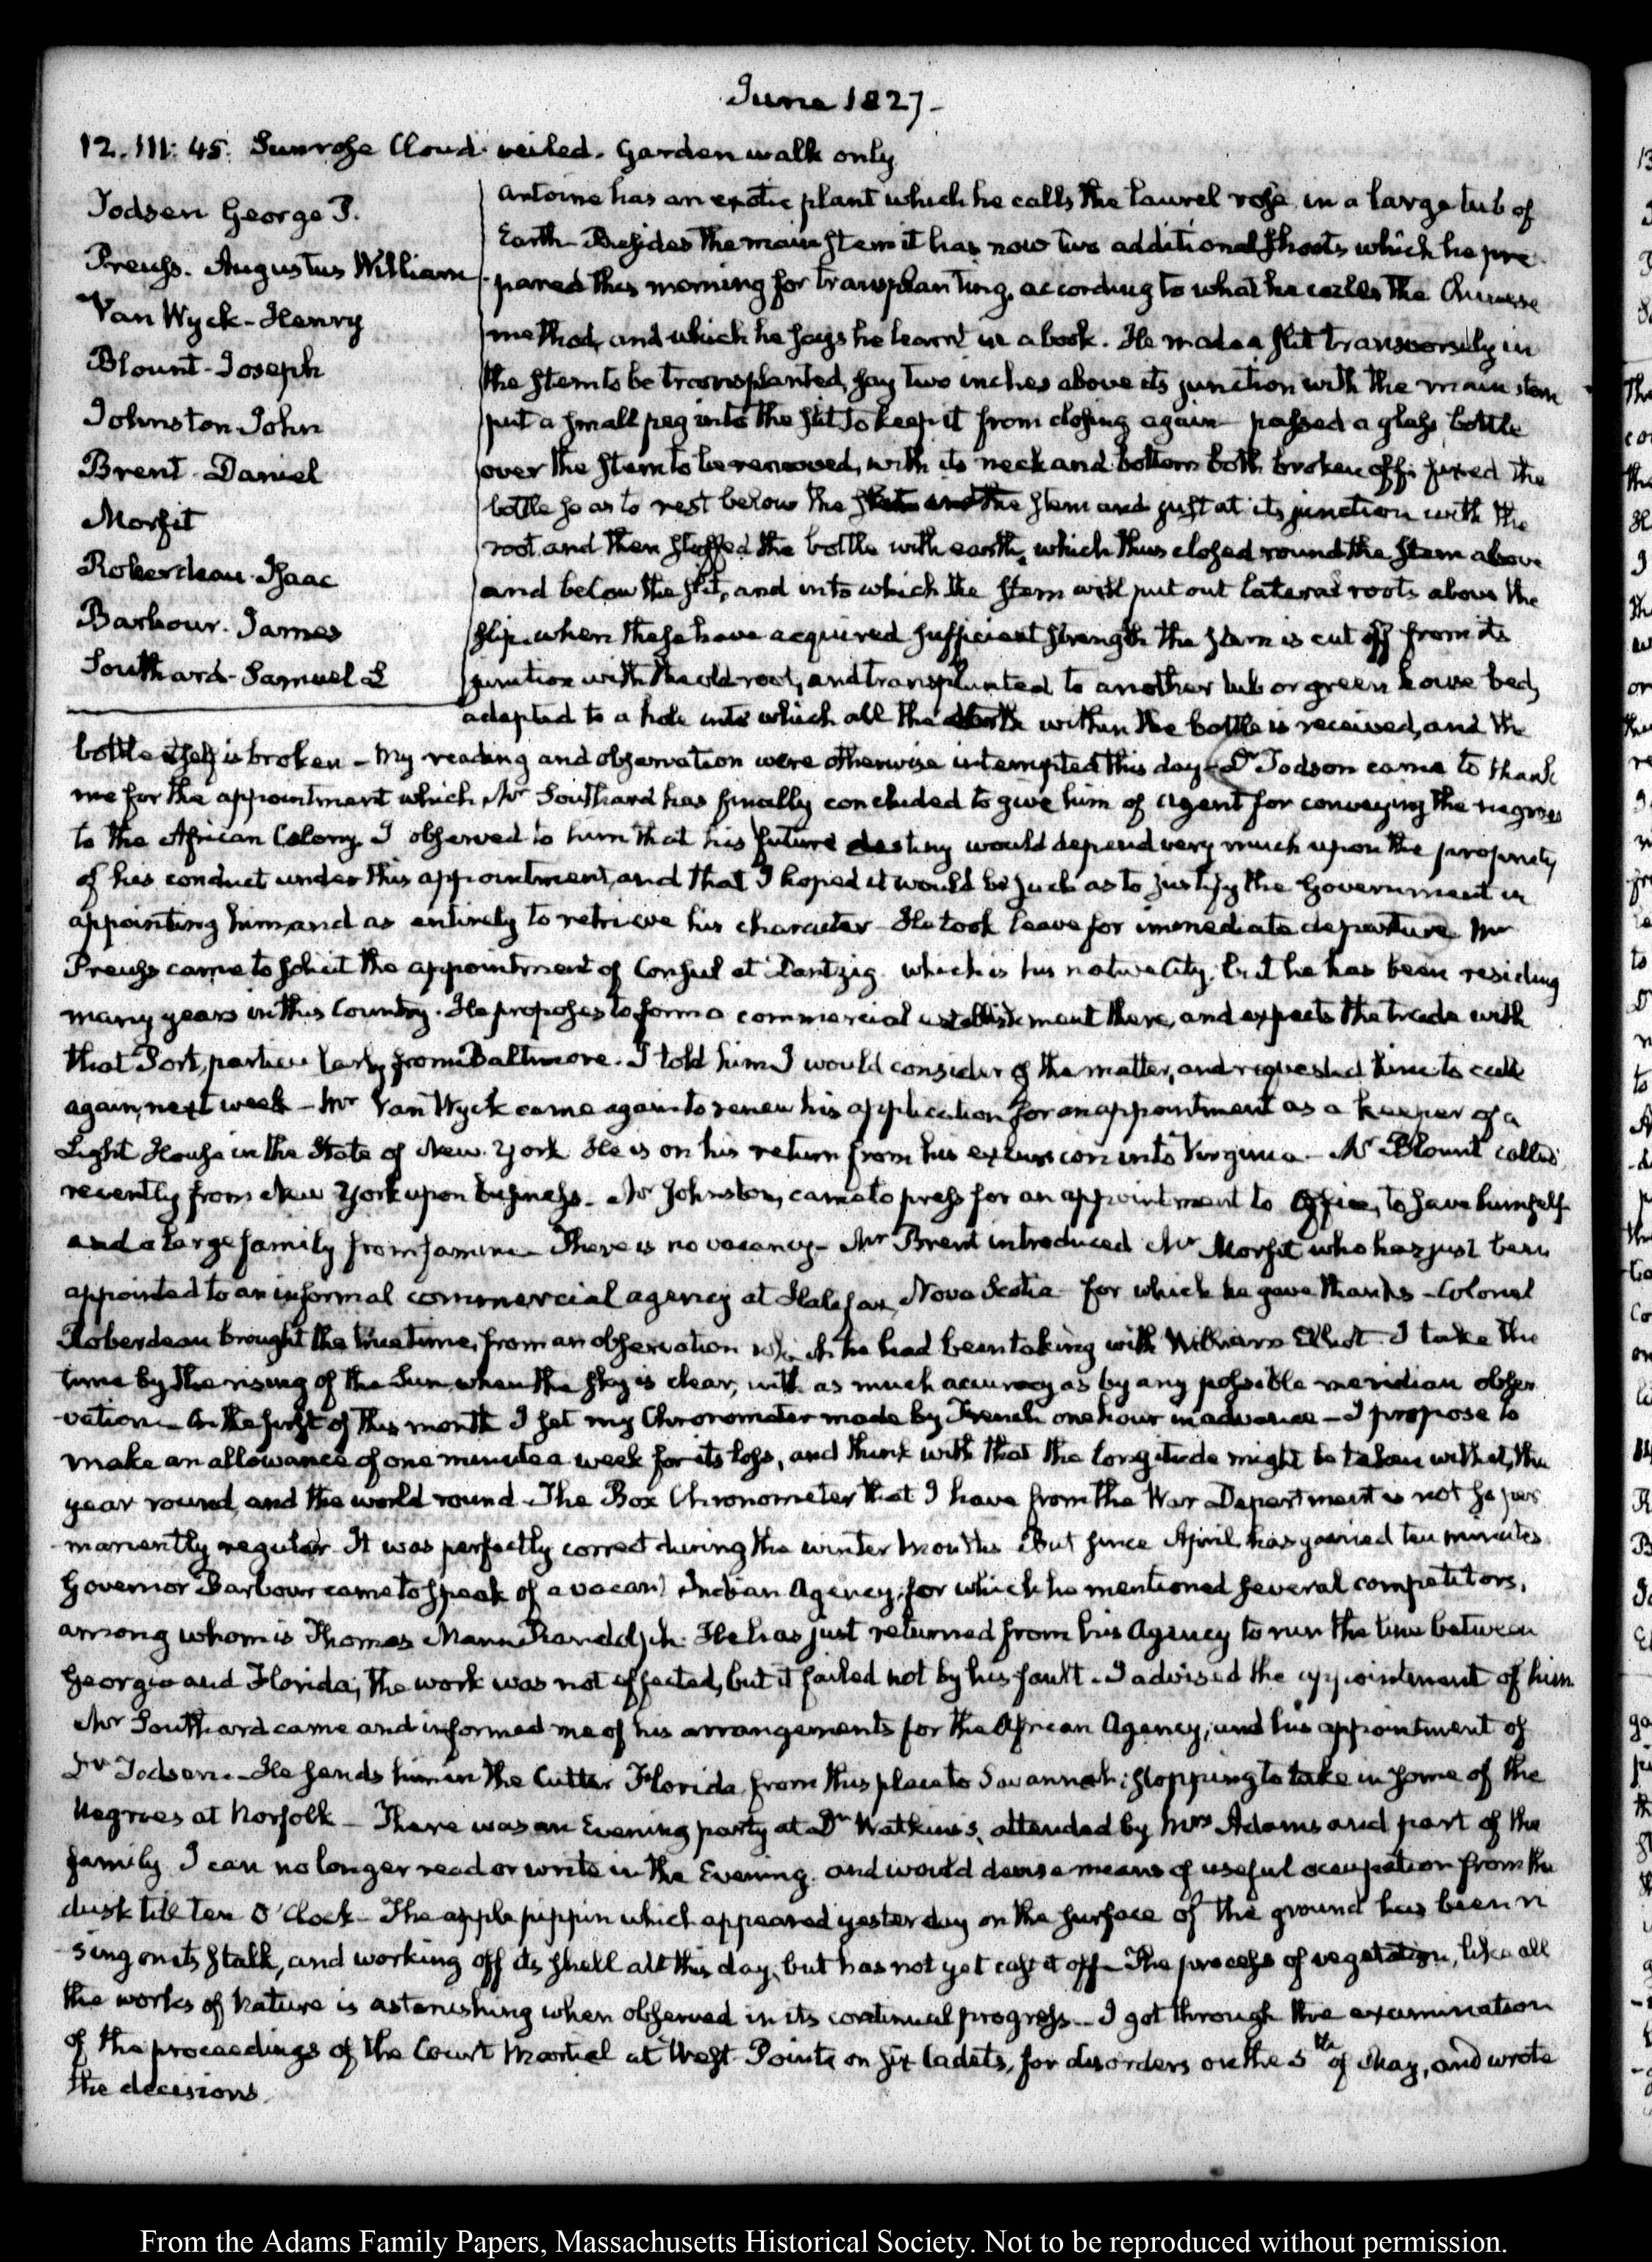 June 1827.
12. III: 45. Sunrose Cloud-veiled. Garden walk only
Todsen George P.
Preuss. Augustus William
Van Wyck - Henry
Blount - Joseph
Johnston John
Brent - Daniel
Morfit
Roberdeau - Isaac
Barbour. James
Southard - Samuel L
Antoine has an exotic plant which he calls the laurel rose, in a large tub of
Earth. Besides the main stem it has now two additional shoots which he pre-
pared this morning for transplanting, according to what he calls the Chinese
method, and which he says he learnt in a book. He made a slit transversely in
the stem to be transplanted, say two inches above its junction with the main stem
put a small peg into the slit to keep it from closing again - passed a glass bottle
over the stem to be removed, with its neck and bottom both broken off; fixed the
bottle so as to rest below the the stem and just at its junction with the
root and then stuffed the bottle with earth, which thus closed round the stem above
and below the slit, and into which the stem will put out lateral roots above the
slip. when these have acquired sufficient strength the stem is cut off from its
junction with the old root, and transplanted to another tub or green house bed,
adapted to a hole into which all the earth within the bottle is received, and the
bottle itself is broken - My reading and observation were otherwise interrupted this day - Dr Todson came to thank
me for the appointment which Mr Southard has finally concluded to give him of Agent for conveying the negroes
to the African Colony. I observed to him that his future destiny would depend very much upon the propriety
of his conduct under this appointment, and that I hoped it would be such as to justify the Government in
appointing him, and as entirely to retrieve his character - He took leave for immediate departure. Mr
Preuss came to solicit the appointment of Consul at Dantzig. which is his native City; but he has been residing
many years in this Country. He proposes to form a commercial establishment there, and expects the trade with
that Port, particularly from Baltimore. I told him I would consider of the matter, and requested him to call
again, next week - Mr Van Wyck came again to renew his application for an appointment as a keeper of a
Light House in the State of New-York He is on his return from his excursion into Virginia - Mr Blount called
recently from New York upon business. Mr Johnston, came to press for an appointment to Office, to save himself
and a large family from famine - There is no vacancy - Mr Brent introduced Mr Morfit who has just been
appointed to an informal commercial agency at Halifax, Nova Scotia for which he gave thanks - Colonel
Roberdeau brought the true time, from an observation which he had been taking with William Elliot I take the
time by the rising of the Sun when the sky is clear, with as much accuracy as by any possible meridian obser-
vation. On the first of this month I set my Chronometer made by French one hour in advance - I propose to
make an allowance of one minute a week for its loss, and think with that the longitude might be taken with it, the
year round, and the world round. The Box Chronometer that I have from the War Department is not so per-
manently regular. It was perfectly correct during the winter months But since April has gained ten minutes.
Governor Barbour came to speak of a vacant Indian Agency, for which he mentioned several competitors,
among whom is Thomas Mann Randolph. He has just returned from his Agency to run the line between
Georgia and Florida; the work was not effected, but it failed not by his fault. I advised the appointment of him.
Mr Southard came and informed me of his arrangements for the African Agency, and his appointment of
Dr Todsen. He sends him in the Cutter Florida, from this place to Savannah; stopping to take in some of the
Negroes at Norfolk - There was an Evening party at Dr Watkins's, attended by Mrs Adams and part of the
family I can no longer read or write in the Evening. and would devise means of useful occupation from the
dusk till ten O'Clock - The apple pippin which appeared yesterday on the surface of the ground has been ri-
sing on its stalk, and working off its shell all this day, but has not yet cast it off - The process of vegetation, like all
the works of Nature is astonishing when observed in its continual progress. - I got through the examination
of the proceedings of the Court Martial at West-Point, on six Cadets, for disorders on the 5th of May, and wrote
the decisions.
From the Adams Family Papers, Massachusetts Historical Society. Not to be reproduced without permission.